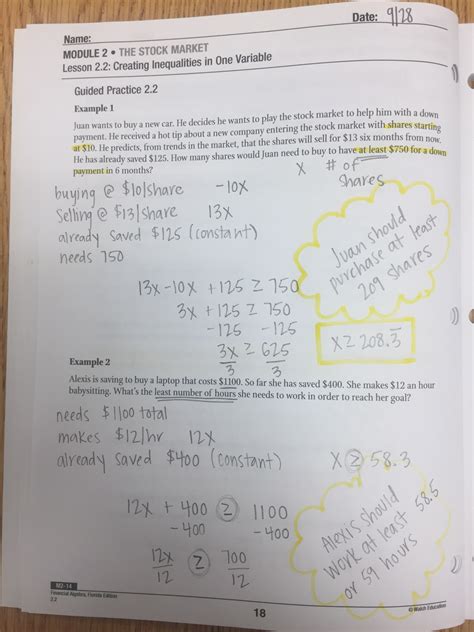 Date: 9/28
Name:
MODULE 2 • THE STOCK MARKET
Lesson 2.2: Creating Inequalities in One Variable
Guided Practice 2.2
Example 1
Juan wants to buy a new car. He decides he wants to play the stock market to help him with a down
payment. He received a hot tip about a new company entering the stock market with shares starting
at $10. He predicts, from trends in the market, that the shares will sell for $13 six months from now.
He has already saved $125. How many shares would Juan need to buy to have at least $750 for a down
payment in 6 months?
X # of shares
buying @ $10/share -10x
Selling @ $13/share 13x
already saved $125 (constant)
needs 750
Juan should
purchase at least
209 shares
13x-10x + 125 ≥ 750
3x + 125 ≥ 750
-125 -125
3x ≥ 625
3 3
X ≥ 208.3̅
Example 2
Alexis is saving to buy a laptop that costs $1100. So far she has saved $400. She makes $12 an hour
babysitting. What's the least number of hours she needs to work in order to reach her goal?
needs $1100 total
makes $12/hr 12x
already saved $400 (constant)
X ≥ 58.3
12x + 400 ≥ 1100
-400 -400
12x ≥ 700
12 12
Alexis should
work at least 58.5
or 59 hours
M2-14
Financial Algebra, Florida Edition
2.2
18
© Walch Education